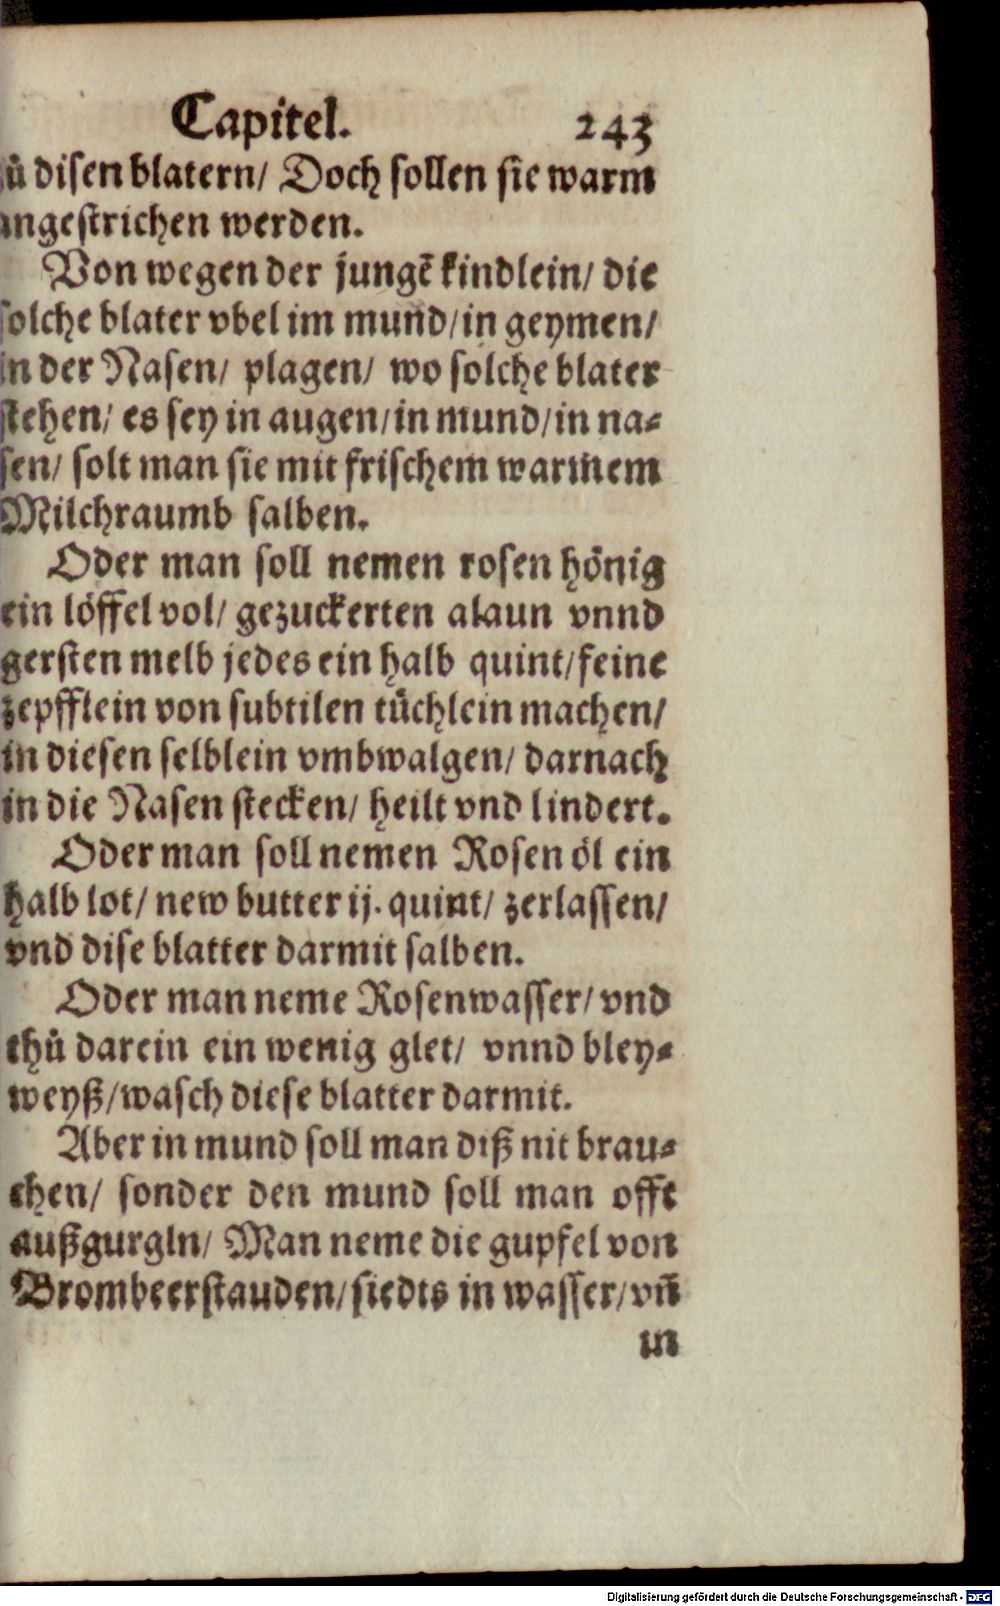 Capitel. 243
zů disen blatern/ Doch sollen sie warm
angestrichen werden.
Von wegen der jungẽ kindlein/ die
solche blater vbel im mund/in geymen/
in der Nasen/ plagen/ wo solche blater
stehen/ es sey in augen/in mund/in na-
sen/ solt man sie mit frischem warmem
Milchraumb salben.
Oder man soll nemen rosen hönig
ein löffel vol/ gezuckerten alaun vnnd
gersten melb jedes ein halb quint/feine
zepfflein von subtilen tüchlein machen/
in diesen selblein vmbwalgen/ darnach
in die Nasen stecken/ heilt vnd lindert.
Oder man soll nemen Rosen öl ein
halb lot/ new butter ij. quint/ zerlassen/
vnd dise blatter darmit salben.
Oder man neme Rosenwasser/ vnd
thů darein ein wenig glet/ vnnd bley-
weyß/wasch diese blatter darmit.
Aber in mund soll man diß nit brau-
chen/ sonder den mund soll man offt
außgurgln/ Man neme die gupfel von
Brombeerstauden/siedts in wasser/vñ
in
Digitalisierung gefördert durch die Deutsche Forschungsgemeinschaft - DFG